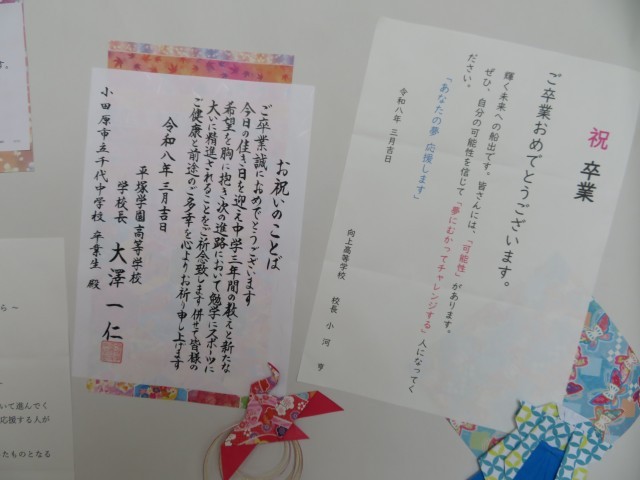 祝 卒業
ご卒業おめでとうございます。
輝く未来への船出です。皆さんには、「可能性」があります。
ぜひ、自分の可能性を信じて「夢にむかってチャレンジする」人になってく
ださい。
「あなたの夢 応援します」
令和八年 三月吉日
向上高等学校 校長 小河 亨
お祝いのことば
ご卒業誠におめでとうございます
今日の佳き日を迎え中学三年間の教えと新たな
希望を胸に抱き次の進路において勉学にスポーツに
大いに精進されることをご祈念致します 併せて皆様の
ご健康と前途のご多幸を心よりお祈り申し上げます
令和八年三月吉日
平塚学園高等学校
学校長 大澤一仁
小田原市立千代中学校 卒業生 殿
ら～
いて進んでく
応援する人が
たものとなる
す。